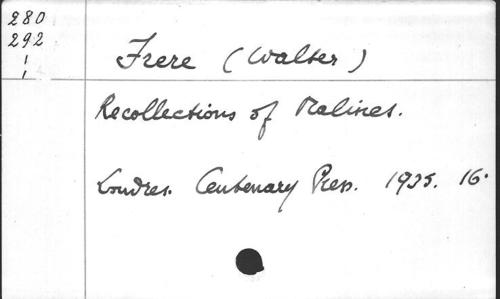 280
292
1
1
Frere (Walter)
Recollections of Malines.
Londres. Centenary Press. 1935. 16°